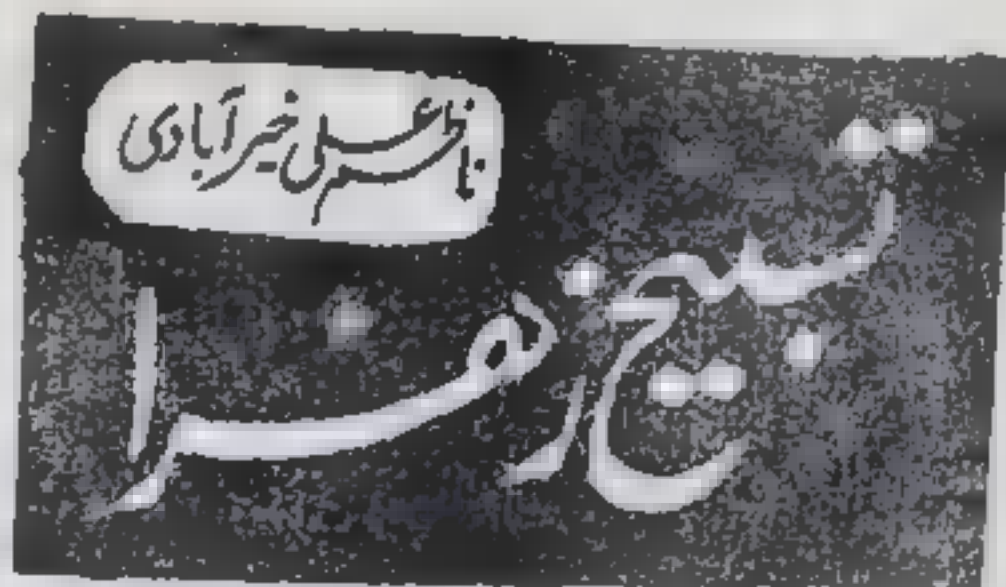 ناظم علی خیرآبادی
تسبیح زہرا